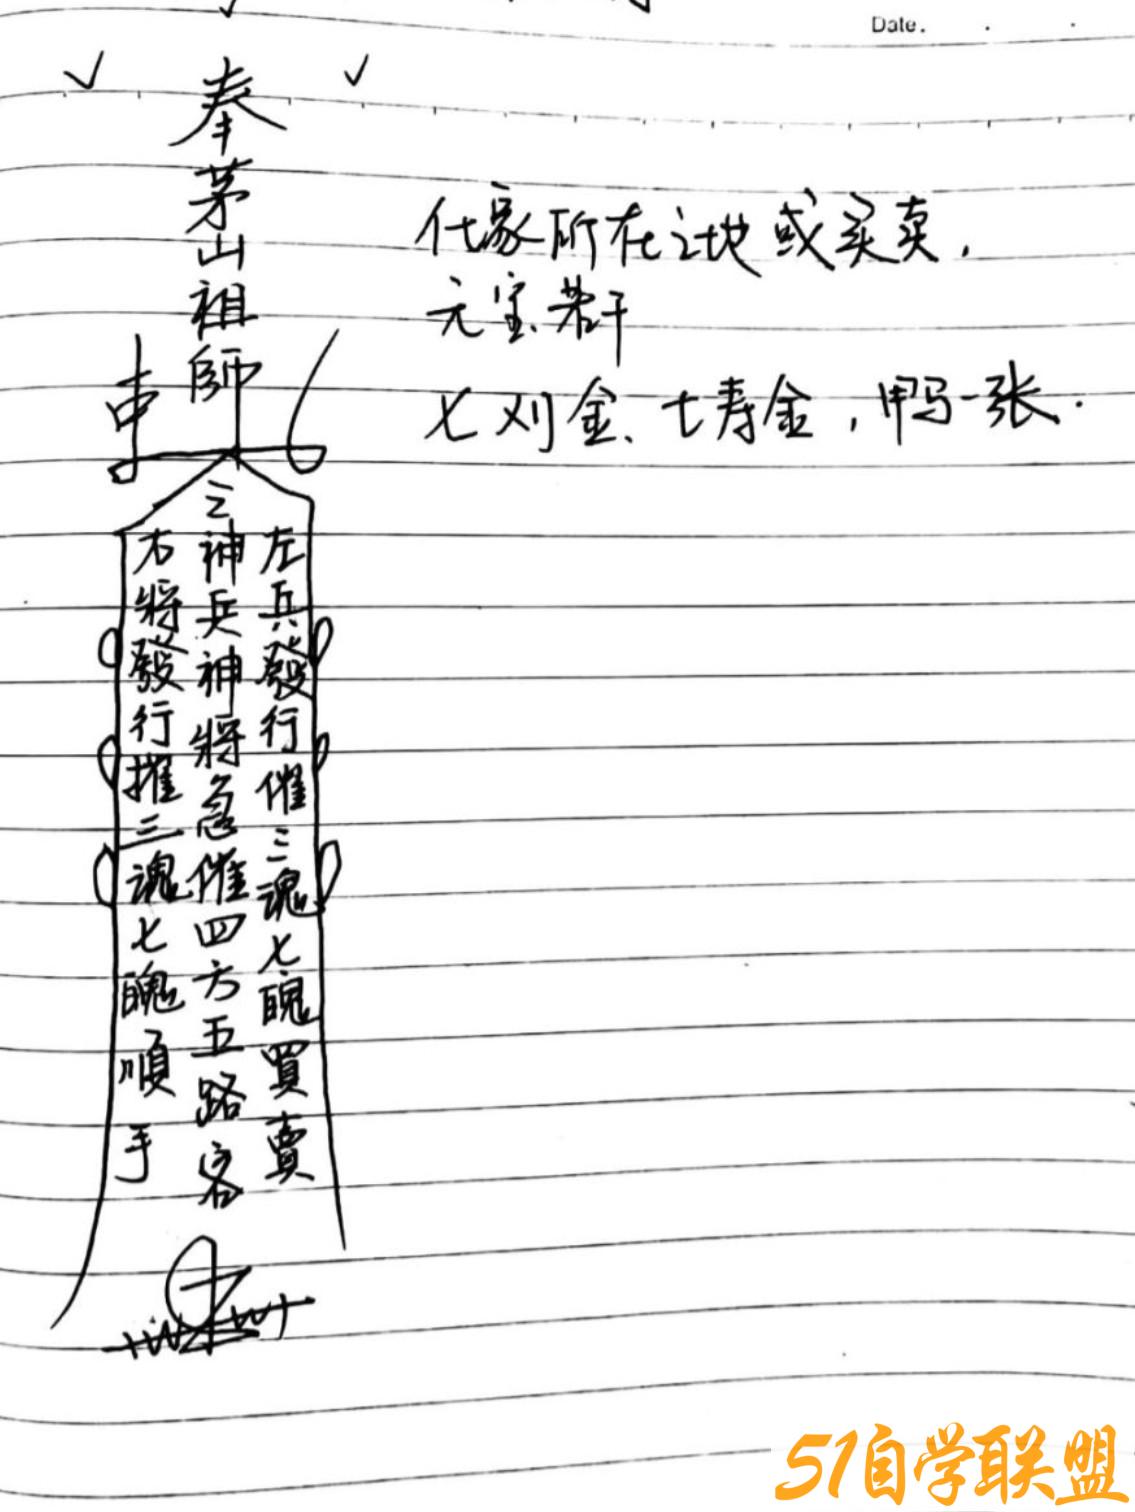 Date.
奉茅山祖師
三神兵神將急催四方五路客
左兵發行催三魂七魄買賣
右將發行摧三魂七魄順手
所在之地或买卖,
元宝、若干
七刈金、七寿金,甲马一张.
51自学联盟